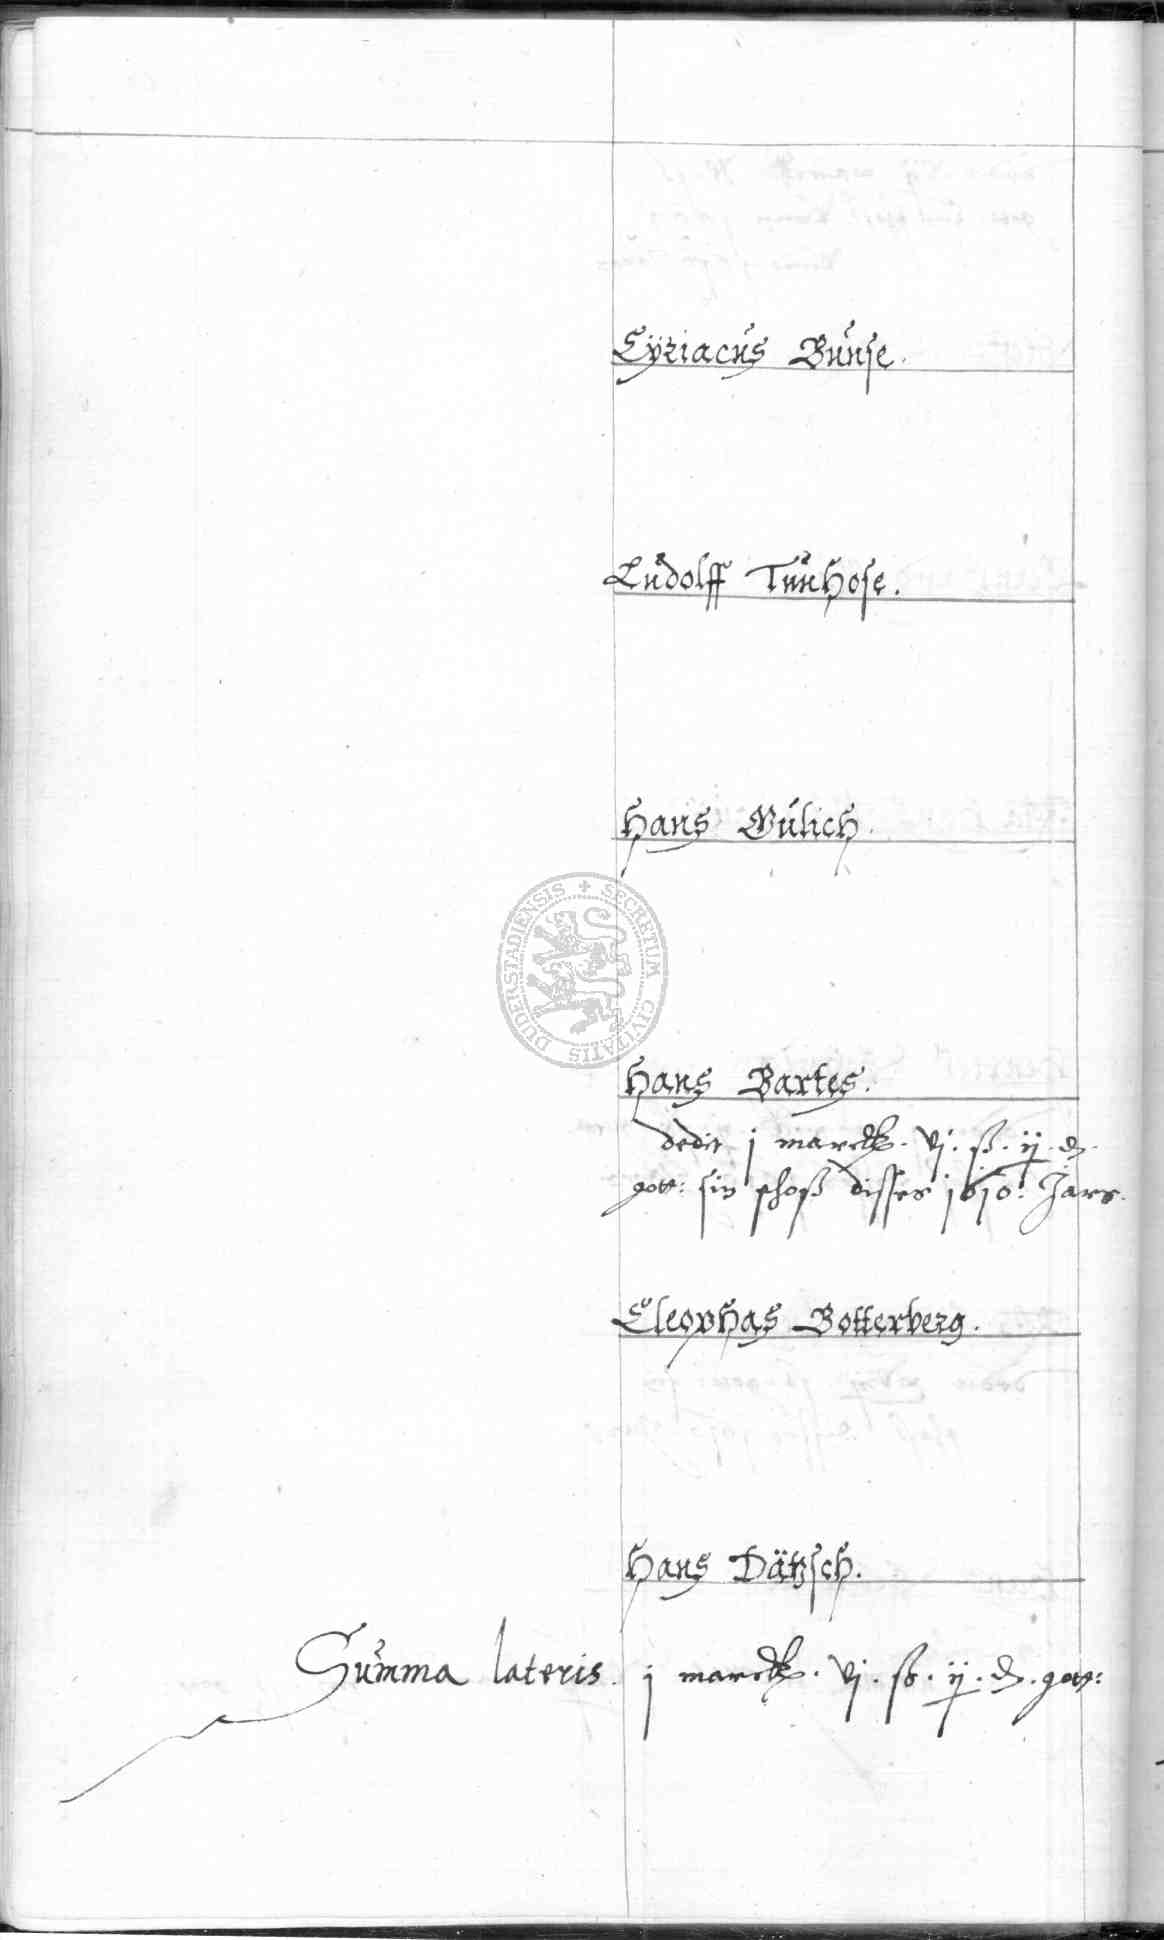 Cÿriacus Bunse.
Ludolff Tunhose.
Hans Gulich.
DUDERSTADIENSIS + SECRETUM CIVITATIS
Hans Bartes.
dedit j marck. vj. ß. ij. d.
gott: sin schoß disses 1610. Jars.
Cleophas Botterberg.
Hans Dätzsch.
Summa lateris. j marck. vj. ß. ij. d. gott: